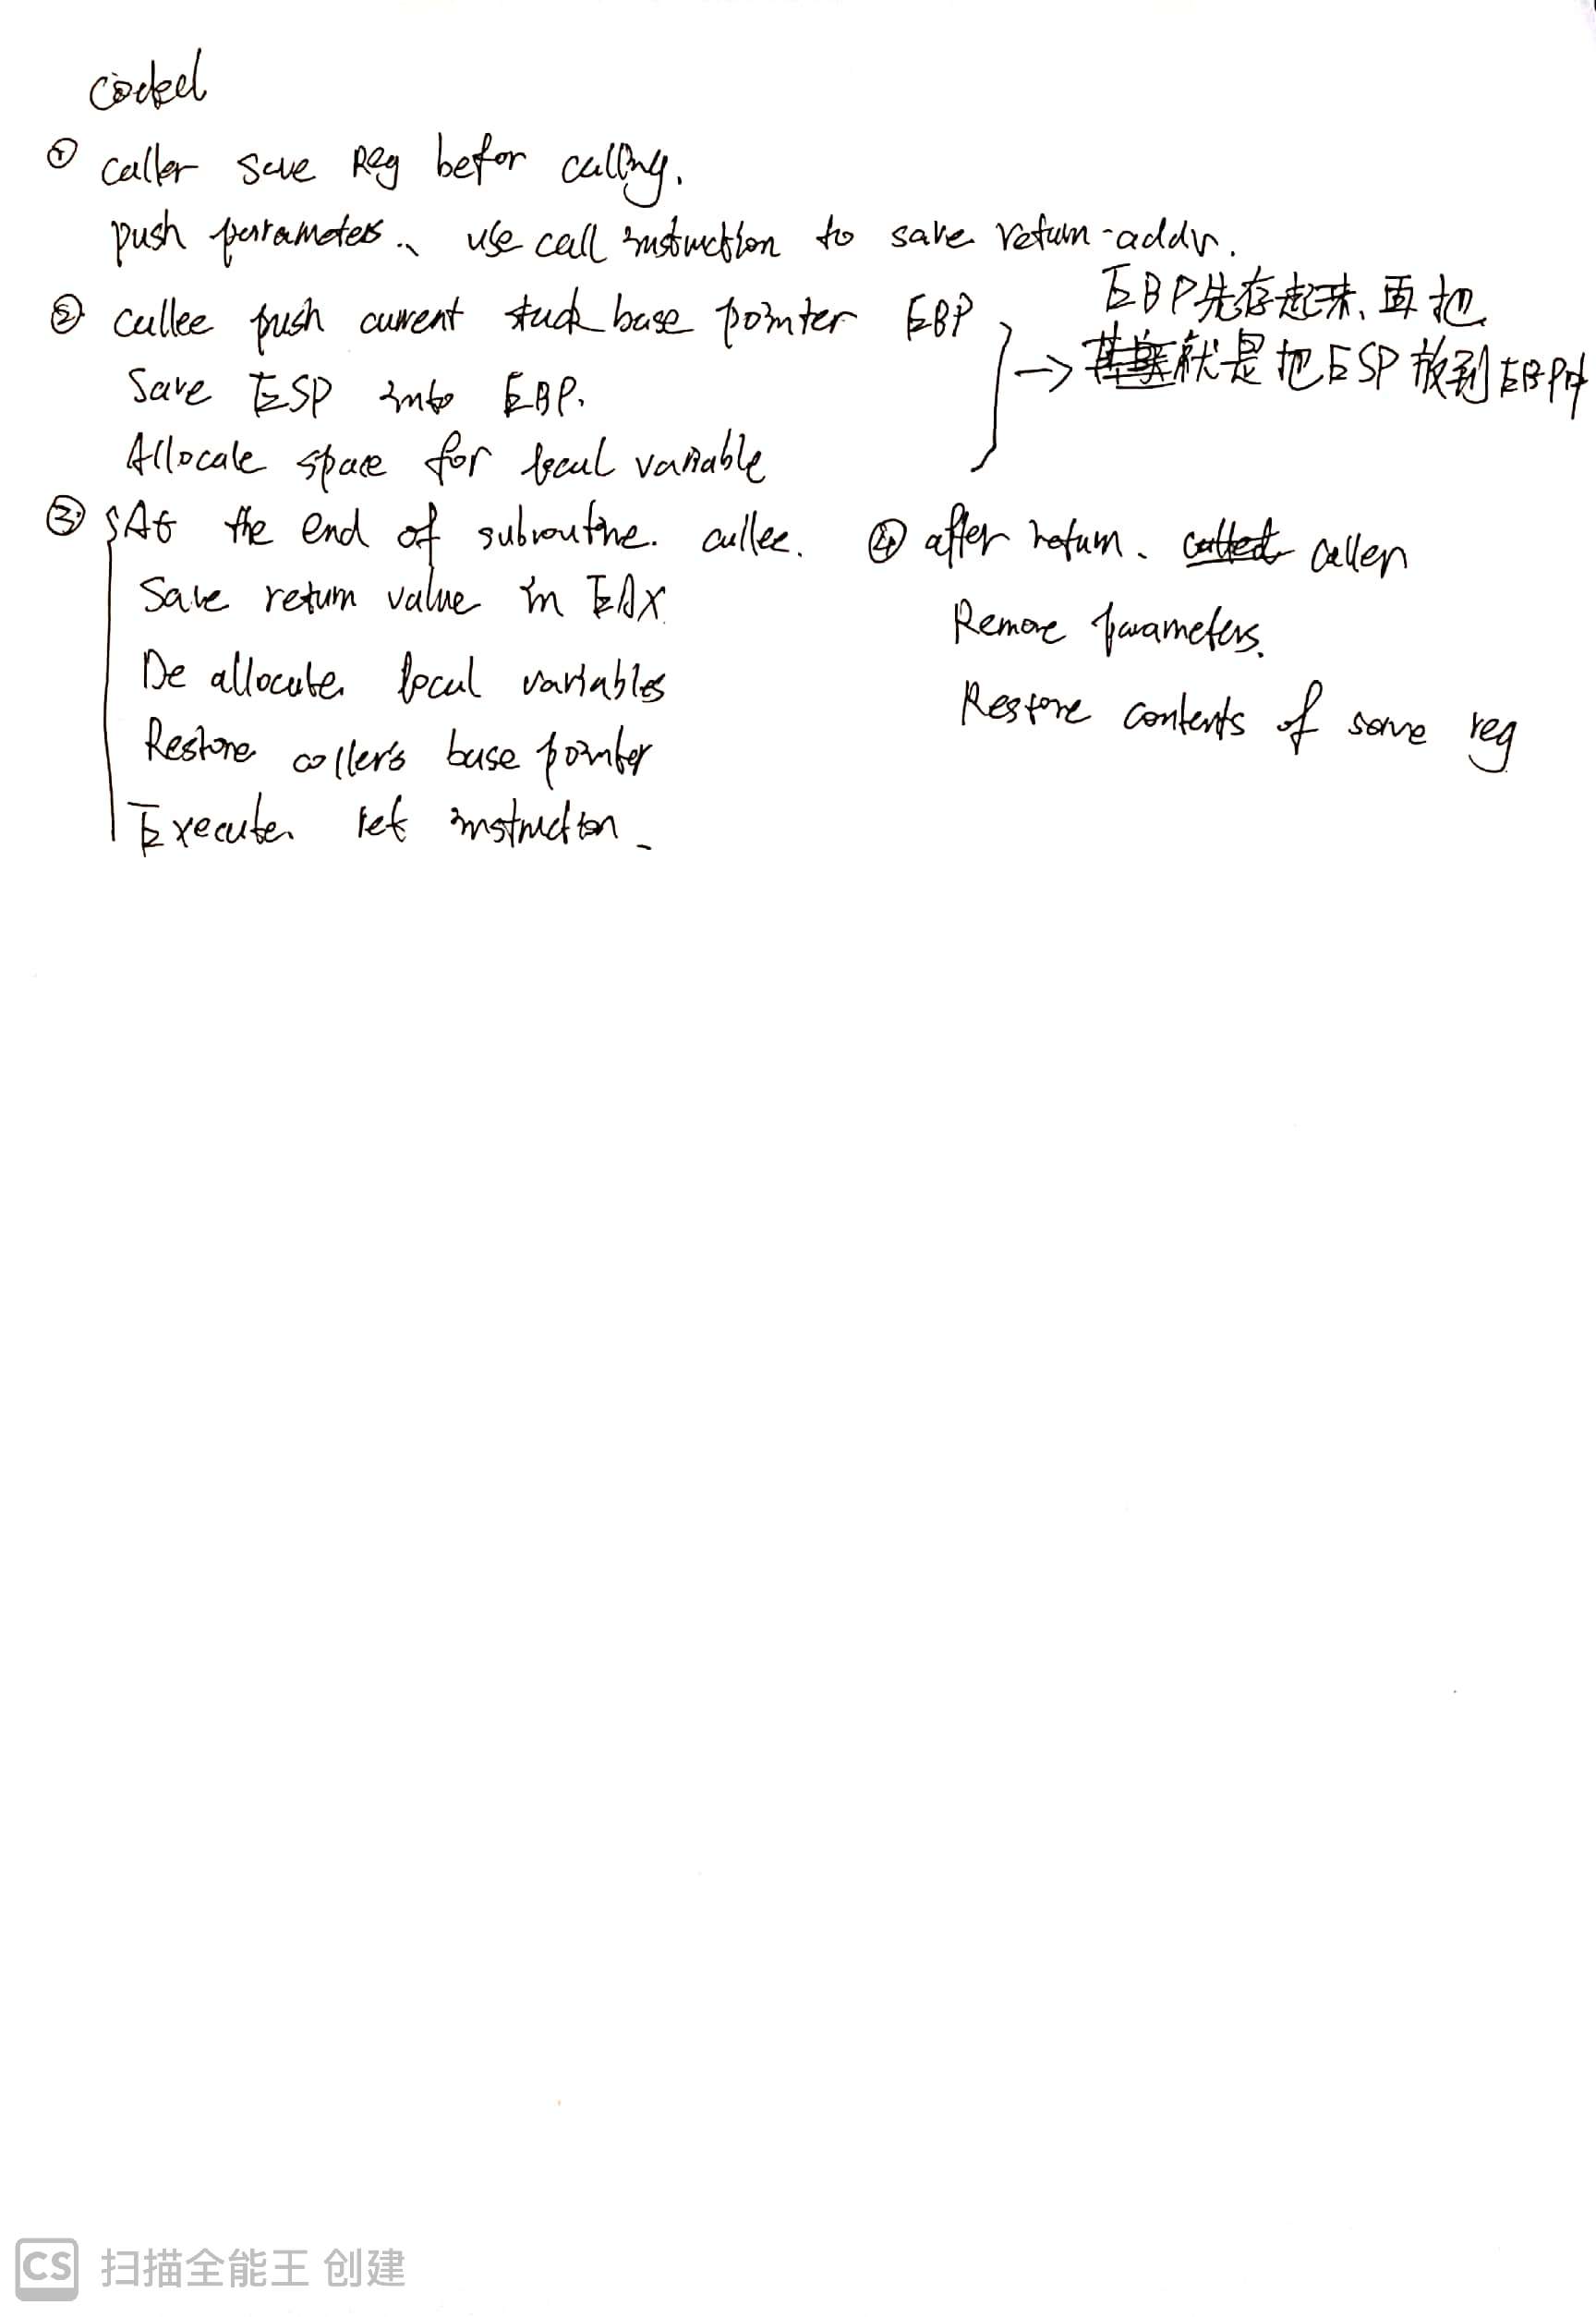 ① caller save Reg befor calling.
push parameters、 use call instruction to save return-addr.
② callee push current stack base pointer EBP
EBP先存起来,再把
Save ESP into EBP.
→ 就是把ESP放到EBP中
Allocate space for local variable
③ At the end of subroutine. callee.
Save return value in EAX
De allocate local variables
Restore caller's base pointer
Execute ret instruction
④ after return. called caller
Remove parameters.
Restore contents of some reg
CS 扫描全能王 创建